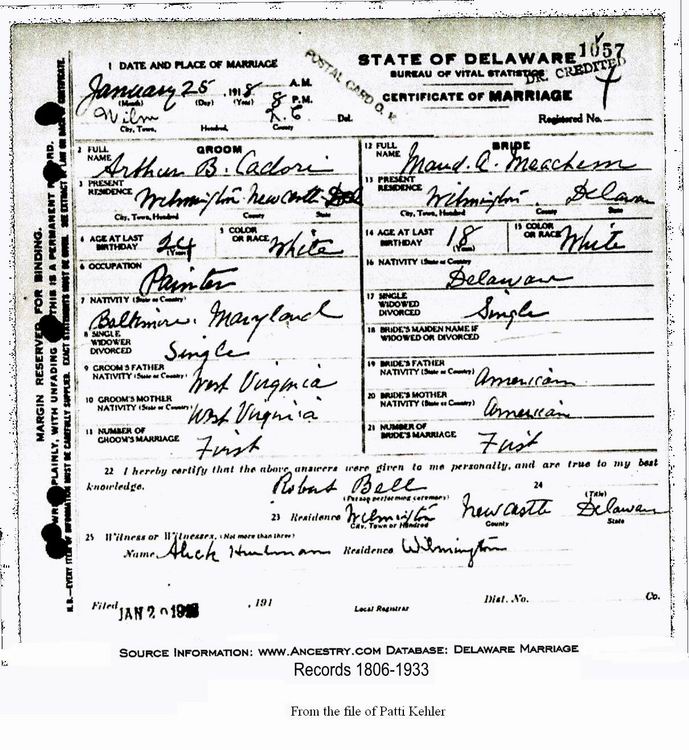 1 DATE AND PLACE OF MARRIAGE
January 25, 1918 A.M.
(Month) (Day) (Year) 8 P.M.
Wilm N.C. Del.
City, Town, Hundred, County
POSTAL CARD O. K.
STATE OF DELAWARE
BUREAU OF VITAL STATISTICS
CERTIFICATE OF MARRIAGE
1057
DR. CREDITED
Registered No.
MARGIN RESERVED FOR BINDING.
WRITE PLAINLY, WITH UNFADING THIS IS A PERMANENT RECORD.
N. B.—EVERY ITEM OF INFORMATION MUST BE CAREFULLY SUPPLIED. EXACT STATEMENTS MUST BE GIVEN. SEE EXTRACT OF LAW ON BACK OF CERTIFICATE.
GROOM
2 FULL NAME Arthur B. Cadori
3 PRESENT RESIDENCE Wilmington New Castle Del
City, Town, Hundred County State
4 AGE AT LAST BIRTHDAY 24 (Years)
5 COLOR OR RACE White
6 OCCUPATION Painter
7 NATIVITY (State or Country)
Baltimore, Maryland
8 SINGLE WIDOWER DIVORCED Single
9 GROOM'S FATHER NATIVITY (State or Country) West Virginia
10 GROOM'S MOTHER NATIVITY (State or Country) West Virginia
11 NUMBER OF GROOM'S MARRIAGE First
BRIDE
12 FULL NAME Maud. A. Meachem
13 PRESENT RESIDENCE Wilmington Delaware
City, Town, Hundred County State
14 AGE AT LAST BIRTHDAY 18 (Years)
15 COLOR OR RACE White
16 NATIVITY (State or Country)
Delaware
17 SINGLE WIDOWED DIVORCED Single
18 BRIDE'S MAIDEN NAME IF WIDOWED OR DIVORCED
19 BRIDE'S FATHER NATIVITY (State or Country) American
20 BRIDE'S MOTHER NATIVITY (State or Country) American
21 NUMBER OF BRIDE'S MARRIAGE First
22 I hereby certify that the above answers were given to me personally, and are true to my best
knowledge. Robert Bell 24
(Person performing ceremony) (Title)
23 Residence Wilmington New Castle Delaware
City, Town or Hundred County State
25 Witness or Witnesses, (Not more than three)
Name Residence Wilmington
Filed JAN 2 1918 , 191 Local Registrar Dist. No. Co.
SOURCE INFORMATION: WWW.ANCESTRY.COM DATABASE: DELAWARE MARRIAGE
Records 1806-1933
From the file of Patti Kehler